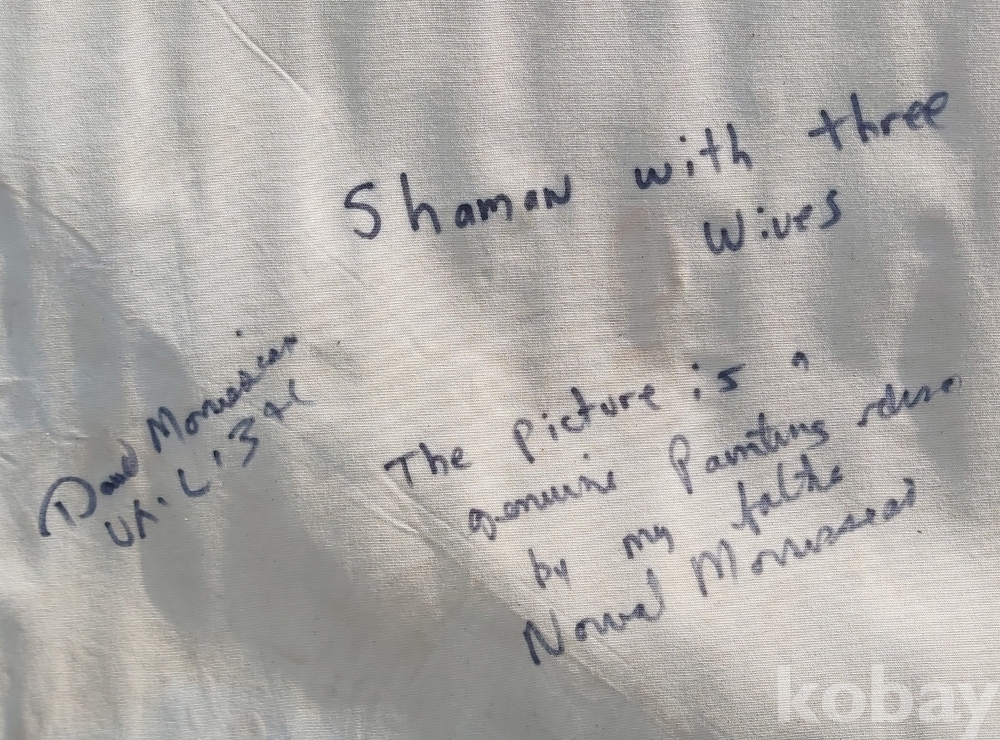 Shaman with three
Wives
David Morrisseau
The Picture is a
genuine Painting
by my
Norval Morrisseau
kobay